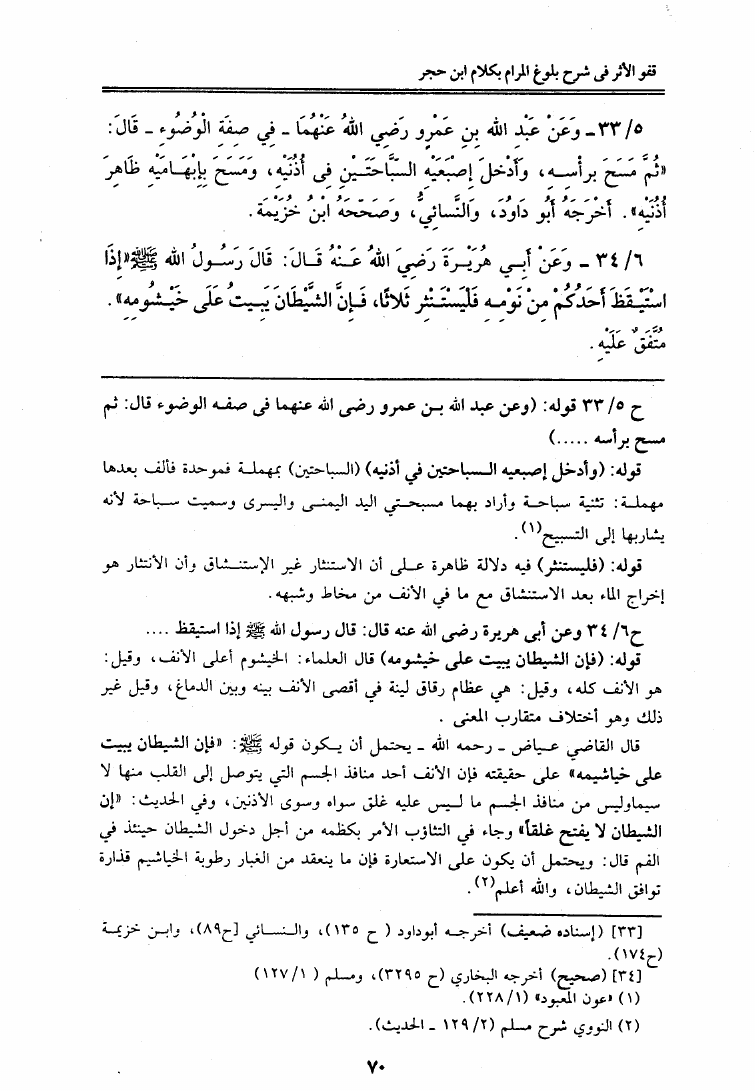 قفو الأثر فى شرح بلوغ المرام بكلام ابن حجر
٥/ ٣٣- وَعَنْ عَبْدِ الله بنِ عَمْرٍو رَضِي اللهُ عَنْهُمَا - فِي صِفَةِ الْوُضُوء - قَالَ:
«ثُمَّ مَسَحَ برأْسِـهِ، وَأَدْخَلَ إِصْبَعَيْهِ السَّبَّاحَتَيْنِ فِى أُذُنَيْهِ، وَمَسَحَ بِإِبْهَامَيْهِ ظَاهِرَ
أُذُنَيْهِ». أَخْرَجَهُ أَبُو دَاوُدَ، وَالنَّسَائِيُّ، وَصَحَّحَهُ ابْنُ خُزَيْمَةَ.
٦/ ٣٤ - وَعَنْ أَبِـي هُرَيْـرَةَ رَضِيَ اللهُ عَـنْهُ قَـالَ: قَالَ رَسُـولُ الله ﷺ «إِذَا
اسْتَيْـقَظَ أَحَدُكُمْ مِنْ نَوْمِـهِ فَلْيَسْتَـنْثِر ثَلاَثًا، فَـإِنَّ الشَّيْطَانَ يَبِـيتُ عَلَى خَيْـشُومِهِ».
مُتَّفَقٌ عَلَيْهِ.
ح ٥/ ٣٣ قوله: (وعن عبد الله بـن عمرو رضى الله عنهما فى صفـه الوضوء قال: ثم
مسح برأسه .....)
قوله: (وأدخل إصبعيه السـباحتين في أذنيه) (السباحتين) بمهملـة فموحدة فألف بعدها
مهملـة: تثنية سباحـة وأراد بهما مسبحـتي اليد اليمنـى واليسرى وسميت سـباحة لأنه
يشاربها إلى التسبيح(١).
قوله: (فليستنثر) فيه دلالة ظاهرة عـلى أن الاستنثار غير الإستنـشاق وأن الأنتثار هو
إخراج الماء بعد الاستنشاق مع ما في الأنف من مخاط وشبهه.
ح٦/ ٣٤ وعن أبى هريرة رضى الله عنه قال: قال رسول الله ﷺ إذا استيقظ ....
قوله: (فإن الشيطان يبيت على خيشومه) قال العلماء: الخيشوم أعلى الأنف، وقيل:
هو الأنف كله، وقيل: هي عظام رقاق لينة في أقصى الأنف بينه وبين الدماغ، وقيل غير
ذلك وهو أختلاف متقارب المعنى .
قال القاضي عـياض - رحمه الله - يحتمل أن يكون قوله ﷺ: «فإن الشيطان يبيت
على خياشيمه» على حقيقته فإن الأنف أحد منافذ الجسم التي يتوصل إلى القلب منها لا
سيماوليس من منافذ الجسم ما لـيس عليه غلق سواه وسوى الأذنين، وفي الحديث: «إن
الشيطان لا يفتح غلقاً» وجاء في التثاؤب الأمر بكظمه من أجل دخول الشيطان حينئذ في
الفم قال: ويحتمل أن يكون على الاستعارة فإن ما ينعقد من الغبار رطوبة الخياشيم قذارة
توافق الشيطان، والله أعلم(٢).
[٣٣] (إسناده ضعيف) أخرجـه أبوداود ( ح ١٣٥)، والنسـائي [ح٨٩)، وابـن خزيمـة
(ح١٧٤).
[٣٤] (صحيح) أخرجه البخاري (ح ٣٢٩٥)، ومسلم ( ١/ ١٢٧)
(١) «عون المعبود» (١/ ٢٢٨).
(٢) النووي شرح مسلم (٢/ ١٢٩ - الحديث).
٧٠